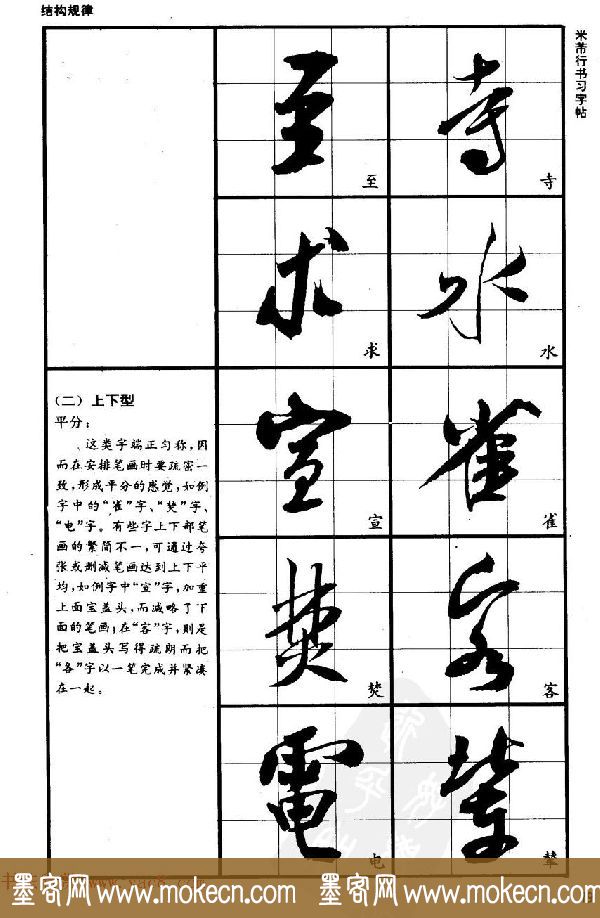 结构规律
米芾行书习字帖
至
寺
求
水
(二)上下型
平分:
、这类字端正匀称,因
而在安排笔画时要疏密一
致,形成平分的感觉,如例
字中的“雀”字、“焚”字、
“电”字。有些字上下部笔
画的繁简不一,可通过夸
张或删减笔画达到上下平
均,如例字中“宣”字,加重
上面宝盖头,而减略了下
面的笔画;在“客”字,则是
把宝盖头写得疏朗而把
“各”字以一笔完成并紧凑
在一起。
宣
雀
焚
客
电
辇
墨客网www.mokecn.com 墨客网www.mokecn.com